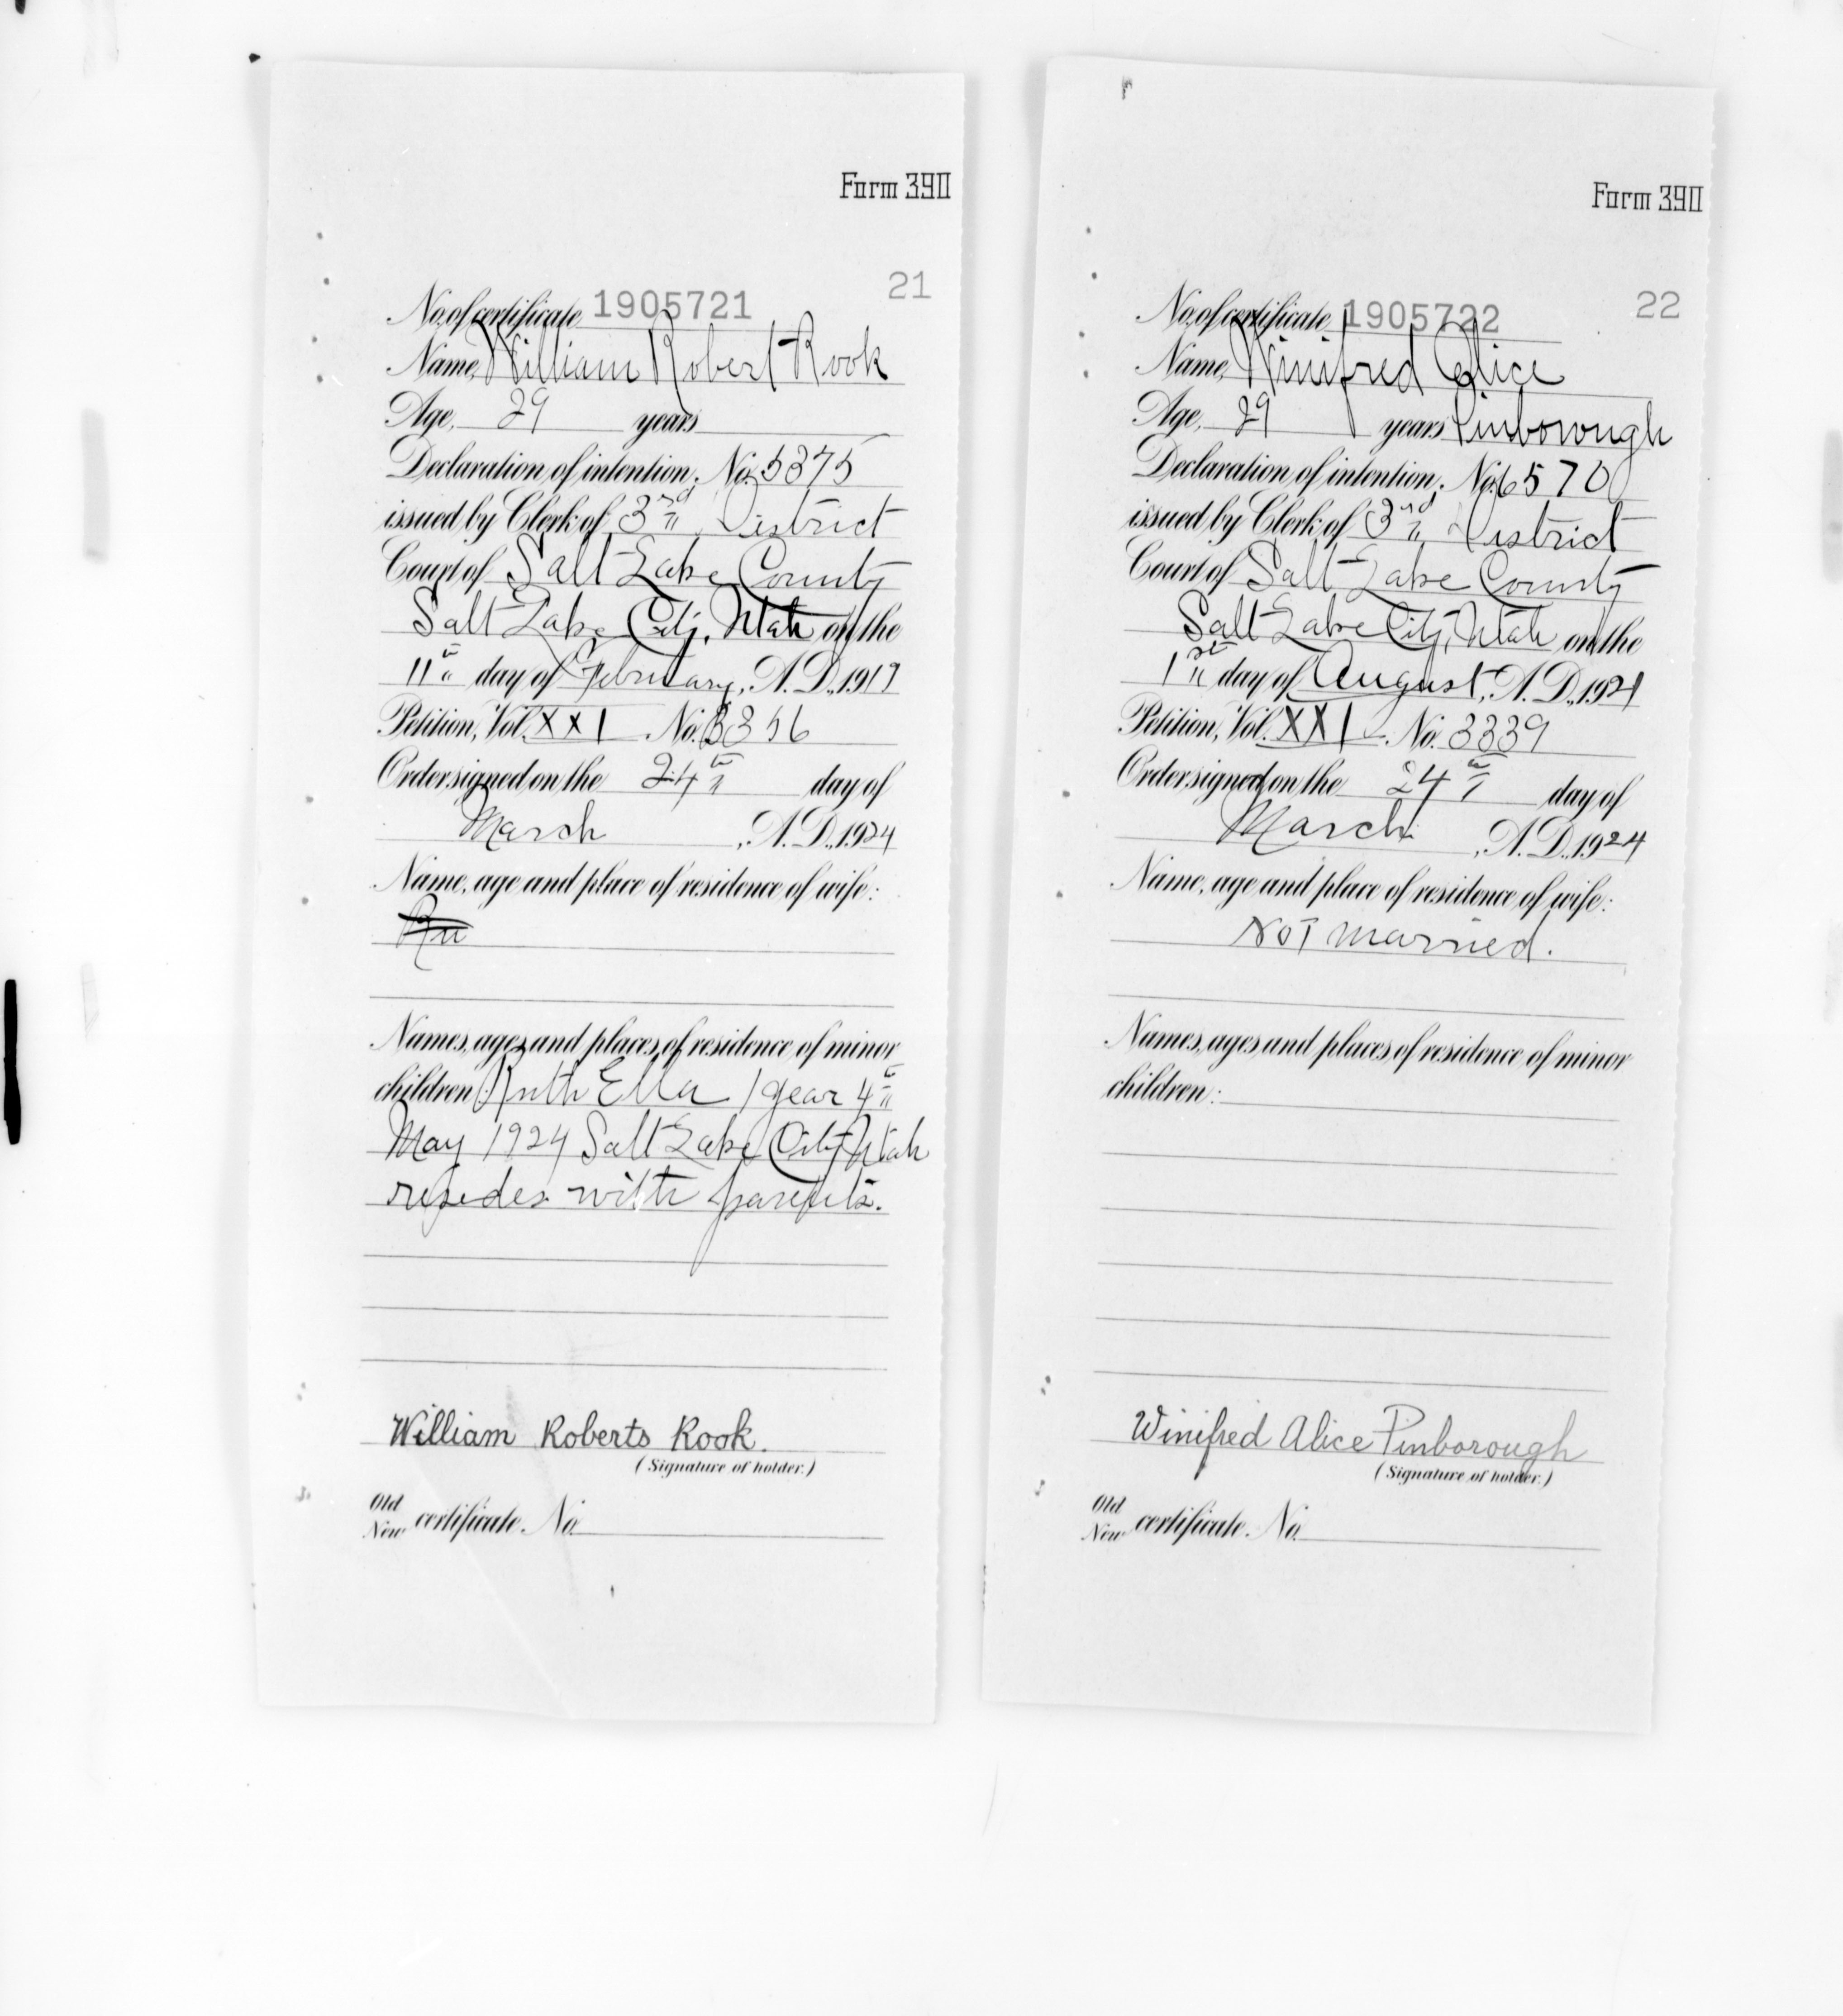 Form 390
21
No. of certificate, 1905721
Name, William Robert Rook
Age, 29 years
Declaration of intention, No. 5375
issued by Clerk of 3rd District
Court of Salt Lake County
Salt Lake City, Utah on the
11th day of February, A. D., 1917
Petition, Vol. XXI No.
Order signed on the 24th day of
March, A. D., 1924
Name, age and place of residence of wife:
Names, ages and places of residence of minor
children: Ruth Ella 1 year 4th
May 1924 Salt Lake City Utah
resides with parents.
William Roberts Rook.
(Signature of holder.)
Old
New certificate. No.
Form 390
22
No. of certificate, 1905722
Name, Winifred Alice
Age, 29 years Pinborough
Declaration of intention, No. 6570
issued by Clerk of 3rd District
Court of Salt Lake County
Salt Lake City, Utah on the
1st day of August, A. D., 1921
Petition, Vol. XXI. No. 3339
Order signed on the 24th day of
March, A. D., 1924
Name, age and place of residence of wife:
Not married.
Names, ages and places of residence of minor
children:
Winifred Alice Pinborough
(Signature of holder.)
Old
New certificate. No.